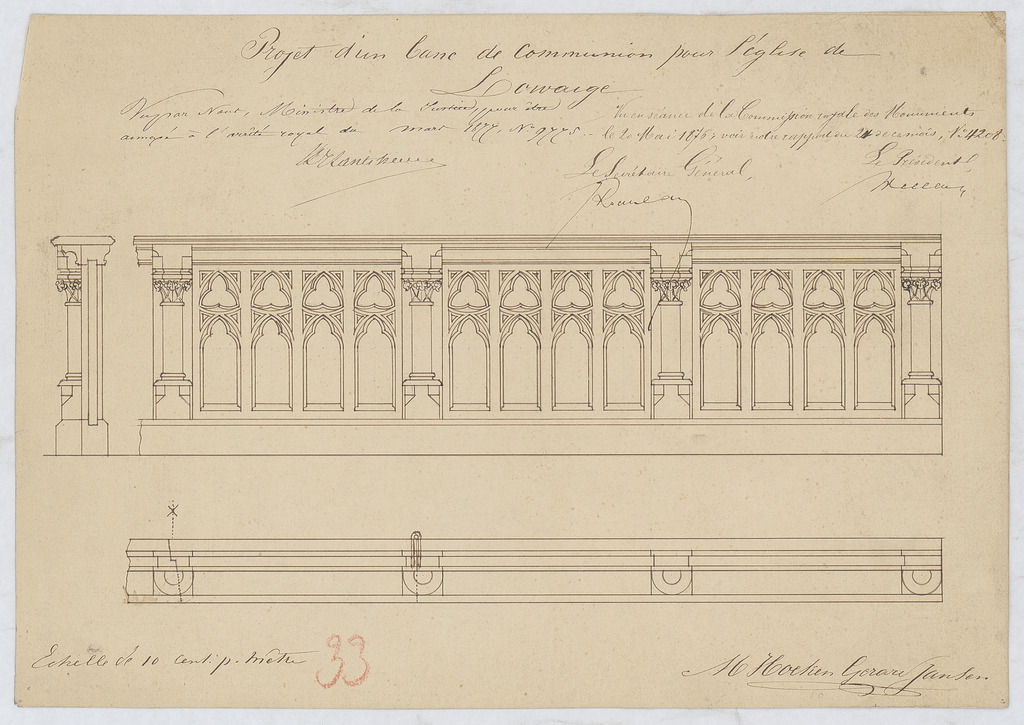 Projet d'un banc de communion pour l'église de
Lowaige
Vu par Nous, Ministre de la Justice, pour être
annexé à l'arrêté royal du mars 1877, N° 9775.
Vu en séance de la Commission royale des Monuments
le 20 Mai 1876; voir notre rapport du 24 de ce mois, N° 4208.
Le Secrétaire Général,
Le Président
Echelle de 10 cent. p. mètre
33
Gerard Jansen